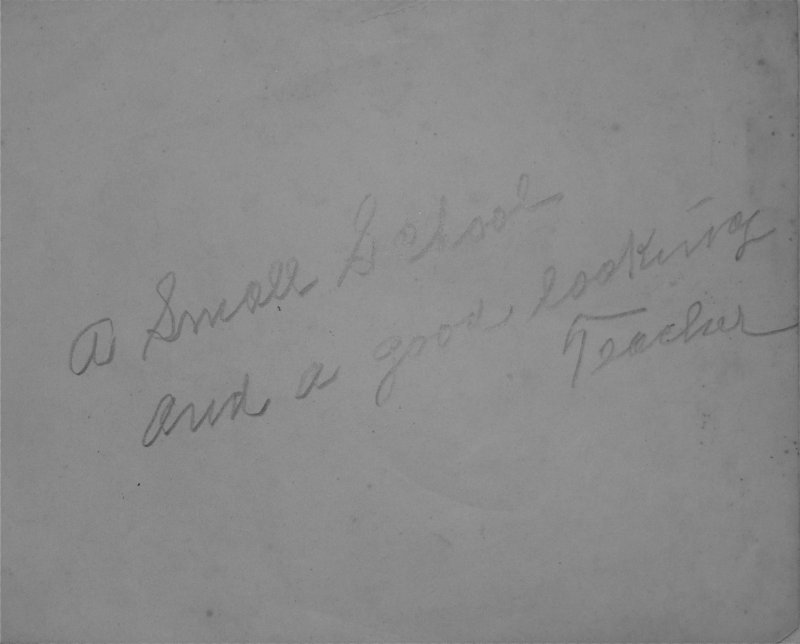 A Small School
and a good looking
Teacher